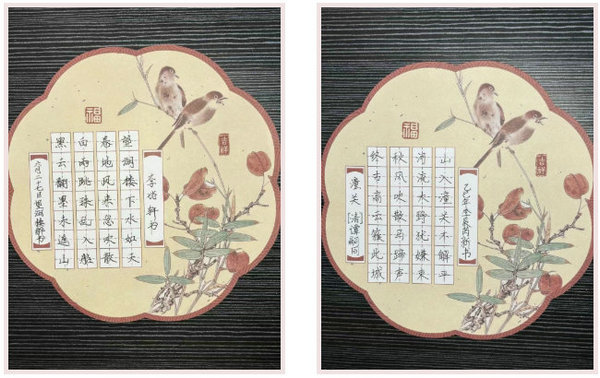 六月二十七日望湖楼醉书
黑云翻墨未遮山
白雨跳珠乱入船
卷地风来忽吹散
望湖楼下水如天
李诗轩书
福
吉祥
潼关 [清]谭嗣同
终古高云簇此城
秋风吹散马蹄声
河流大野犹嫌束
山入潼关不解平
年李
书
福
吉祥